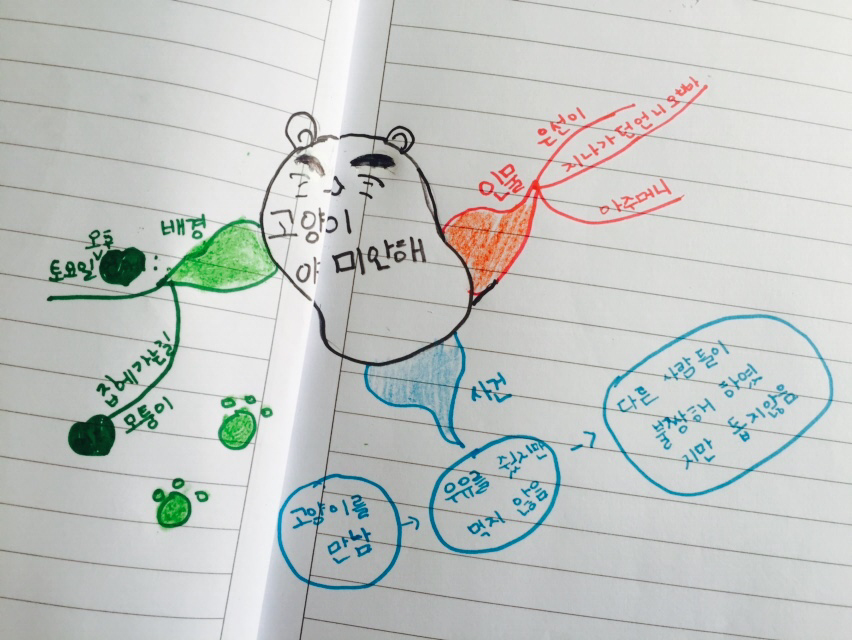 고양이
야 미안해
인물
은선이
지나가던 언니 오빠
아주머니
배경
토요일 오후
집에 가는 길
모퉁이
사건
고양이를
만남
우유를 줬지만
먹지 않음
다른 사람들이
불쌍해 하였
지만 돕지않음